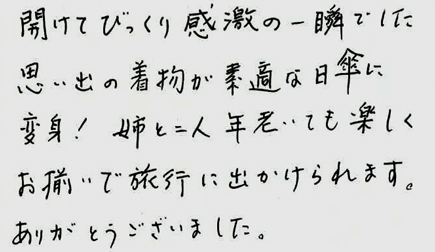 開けてびっくり感激の一瞬でした
思い出の着物が素適な日傘に
変身! 姉と二人年老いても楽しく
お揃いで旅行に出かけられます。
ありがとうございました。